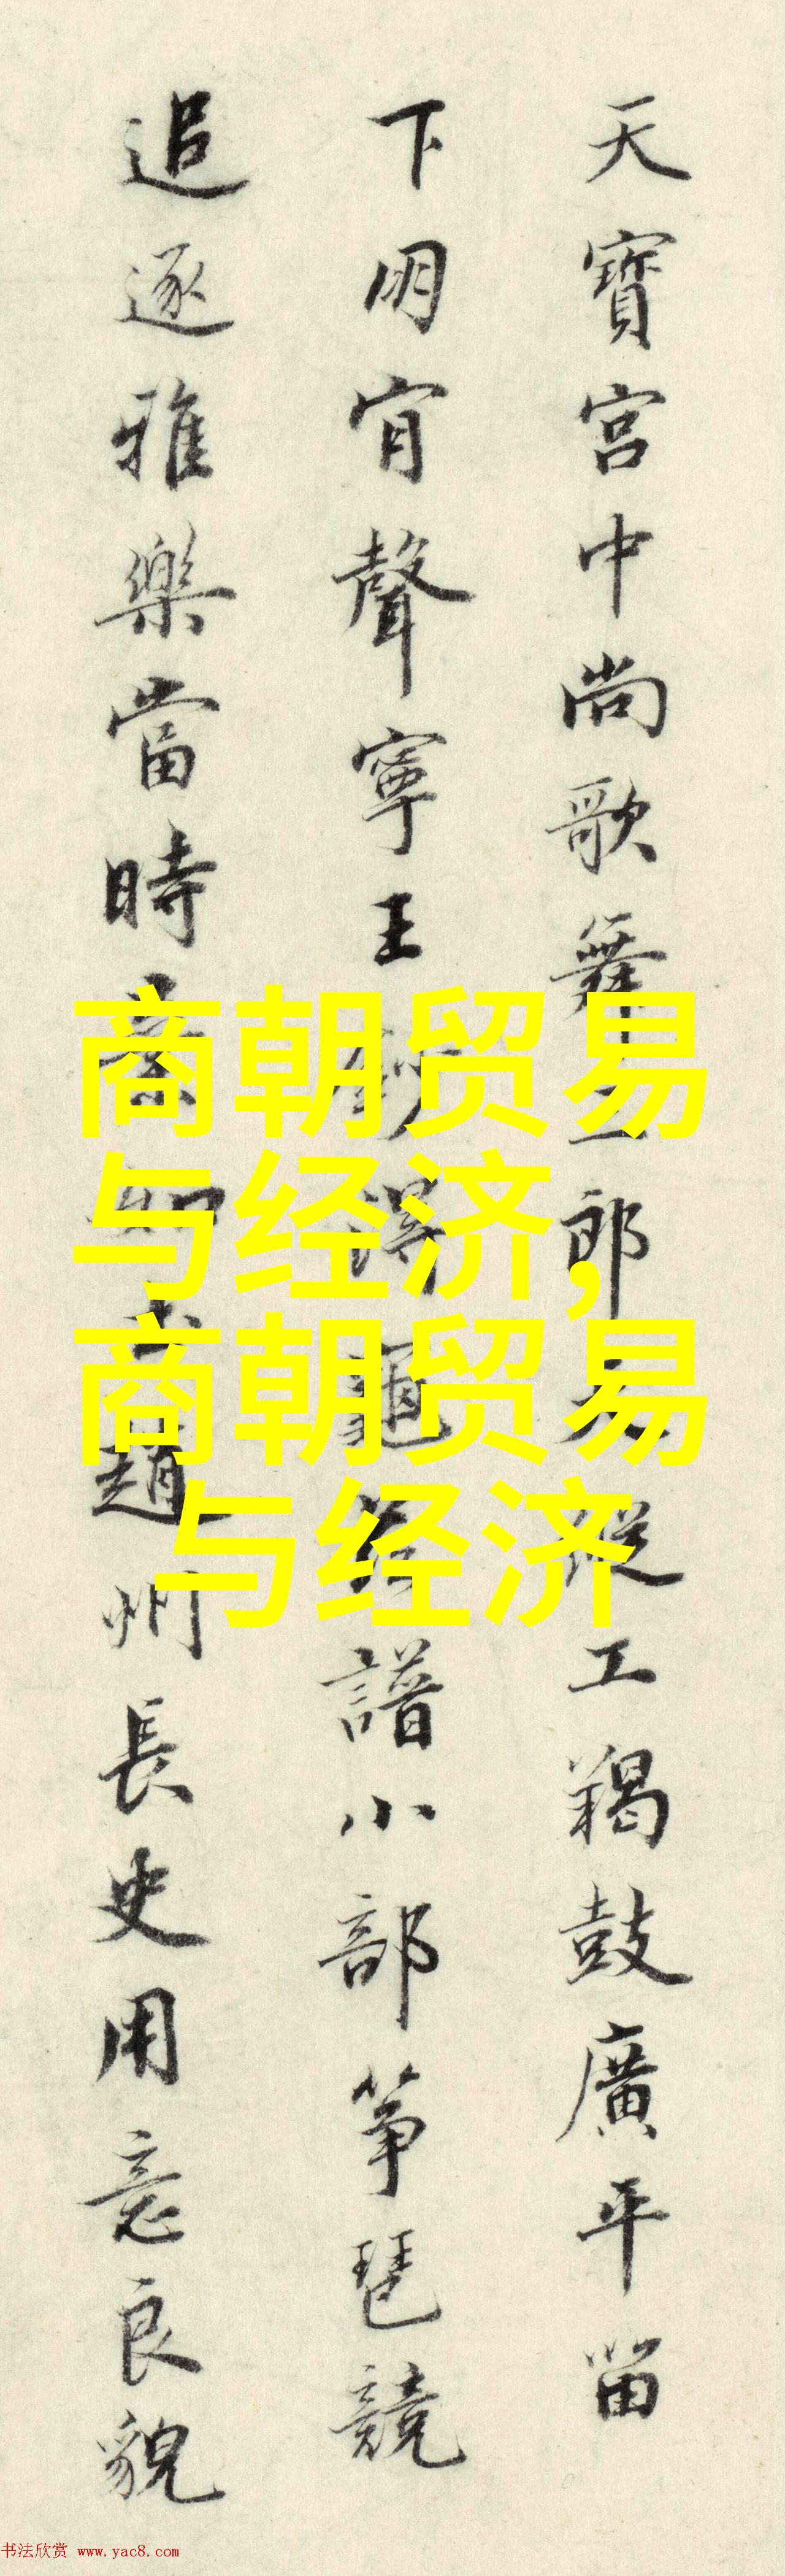 天寶宮中尚歌舞二郎人蹤工羯鼓廣平留
下明肯聲寧王譜小部筝琶競
追逐雅樂當時趙州長史用意良貌
商朝贸易
与经济,
商朝贸易
与经济
书法欣赏 www.yac8.com